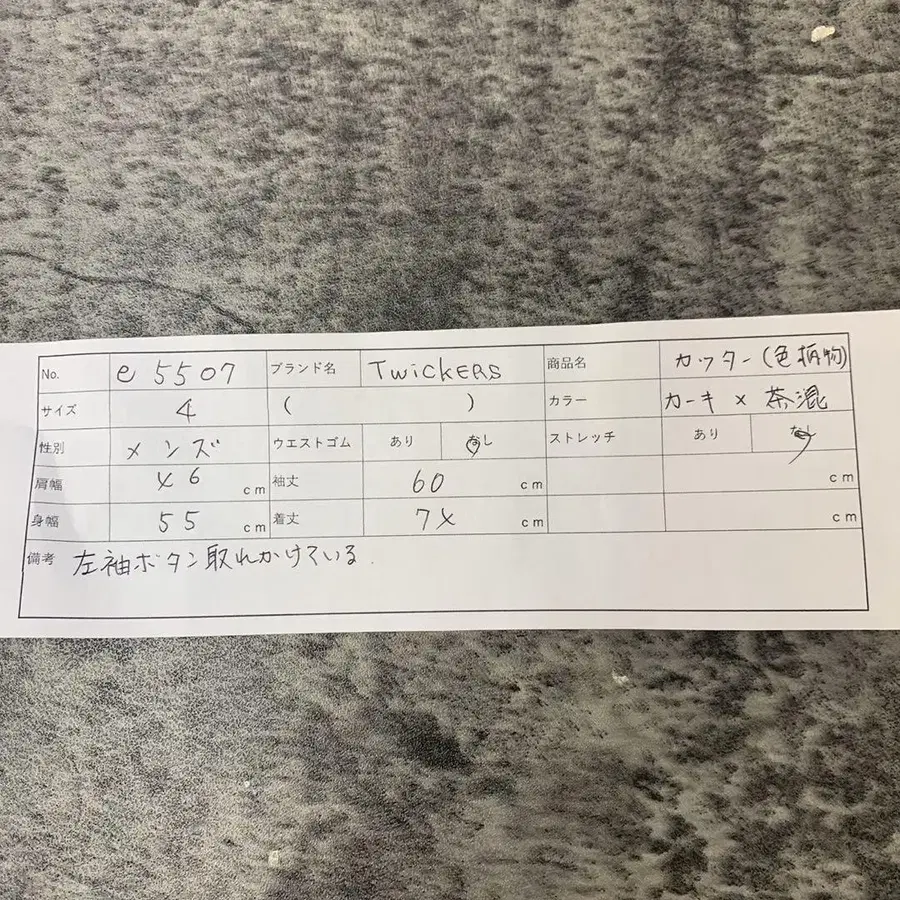 No. e 5507 ブランド名 TWiCKERS 商品名 カッター(色柄物)
サイズ 4 ( ) カラー カーキ × 茶混
性別 メンズ ウエストゴム あり なし ストレッチ あり なし
肩幅 46 cm 袖丈 60 cm cm
身幅 55 cm 着丈 74 cm cm
備考 左袖ボタン取れかけている.